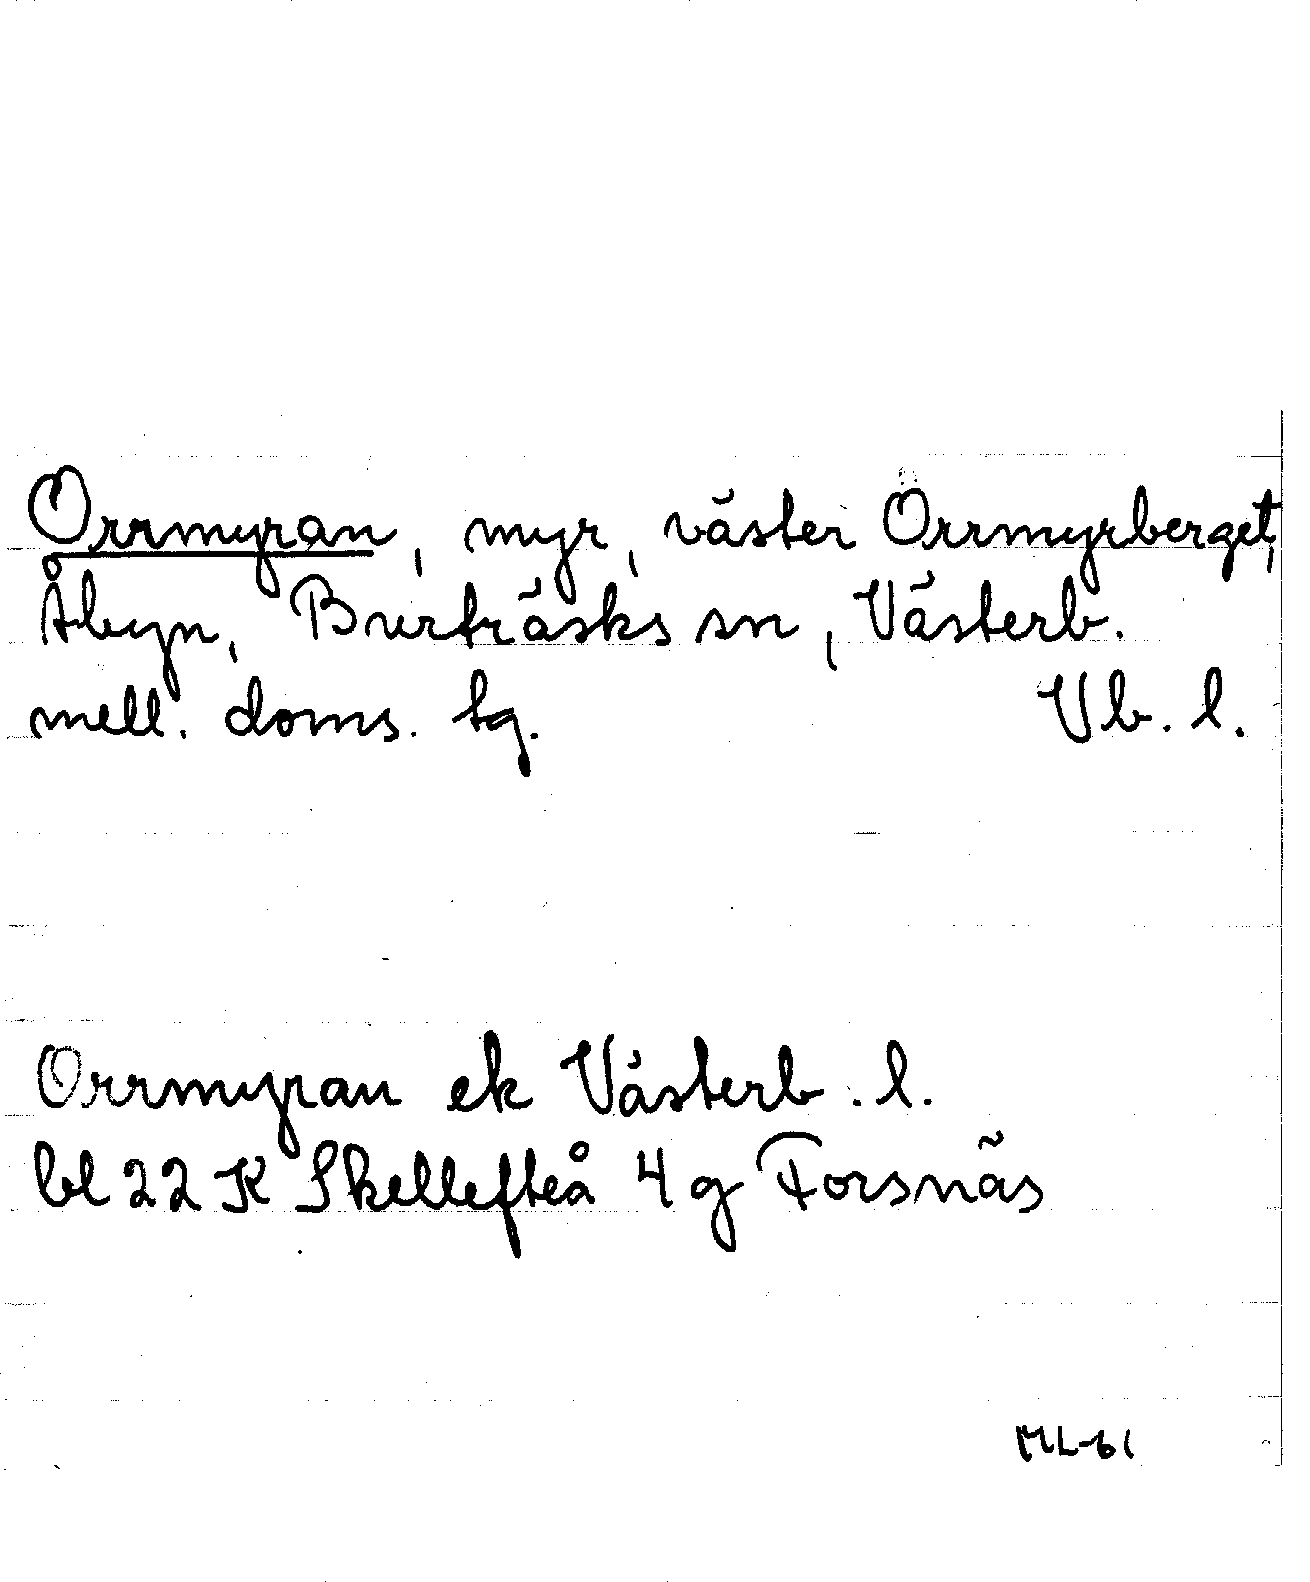 Orrmyran, myr, väster Orrmyrberget,
Åbyn, Burträsks sn, Västerb.
mell. doms. tg. Vb. l.
Orrmyran ek Västerb. l.
bl 22 K Skellefteå 4 g Forsnäs
ML-61